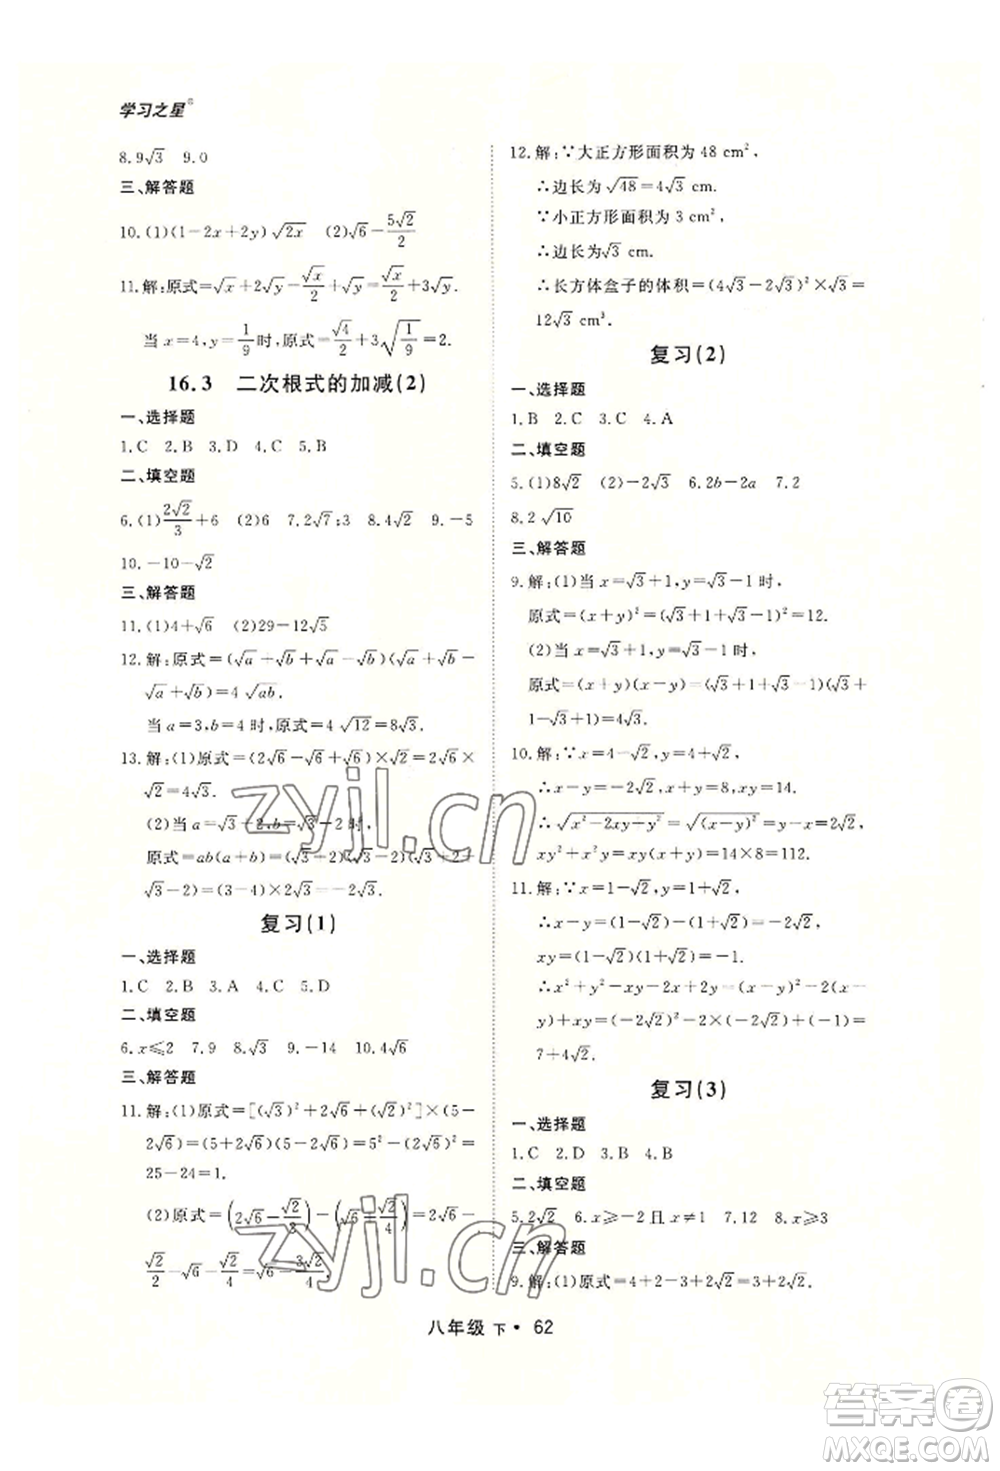 学习之星
8.9√3 9.0
三、解答题
10.(1)(1-2x+2y)√(2x) (2)√6-5√2/2
11.解:原式=√x+2√y-√x/2+√y=√x/2+3√y.
当x=4,y=1/9时,原式=√4/2+3√(1/9)=2.
16.3 二次根式的加减(2)
一、选择题
1.C 2.B 3.D 4.C 5.B
二、填空题
6.(1)2√2/3+6 (2)6 7.2√7;3 8.4√2 9.-5
10.-10-√2
三、解答题
11.(1)4+√6 (2)29-12√5
12.解:原式=(√a+√b+√a-√b)(√a+√b-
√a+√b)=4√(ab).
当a=3,b=4时,原式=4√12=8√3.
13.解:(1)原式=(2√6-√6+√6)×√2=2√6×
√2=4√3.
(2)当a=√3+2,b=√3-2时,
原式=ab(a-b)=(√3+2)(√3-2)(√3+2-
√3-2)=(3-4)×4=-4.
复习(1)
一、选择题
1.C 2.B 3.A 4.C 5.D
二、填空题
6.x≤2 7.9 8.√3 9.-14 10.4√6
三、解答题
11.解:(1)原式=[(√3)²+2√6+(√2)²]×(5-
2√6)=(5+2√6)(5-2√6)=5²-(2√6)²=
25-24=1.
(2)原式=(2√6-√2/2)-(√6+√2/4)=2√6-
√2/2-√6-√2/4=√6-3√2/4.
12.解:∵大正方形面积为48 cm²,
∴边长为√48=4√3 cm.
∵小正方形面积为3 cm²,
∴边长为√3 cm.
∴长方体盒子的体积=(4√3-2√3)²×√3=
12√3 cm³.
复习(2)
一、选择题
1.B 2.C 3.C 4.A
二、填空题
5.(1)8√2 (2)-2√3 6.2b-2a 7.2
8.2√10
三、解答题
9.解:(1)当x=√3+1,y=√3-1时,
原式=(x+y)²=(√3+1+√3-1)²=12.
(2)当x=√3+1,y=√3-1时,
原式=(x+y)(x-y)=(√3+1+√3-1)(√3+
1-√3+1)=4√3.
10.解:∵x=4-√2,y=4+√2,
∴x-y=-2√2,x+y=8,xy=14.
∴√(x²-2xy+y²)=√((x-y)²)=|x-y|=2√2,
xy²+x²y=xy(x+y)=14×8=112.
11.解:∵x=1-√2,y=1+√2,
∴x-y=(1-√2)-(1+√2)=-2√2,
xy=(1-√2)(1+√2)=-1.
∴x²+y²-xy-2x+2y=(x-y)²-2(x-
y)+xy=(-2√2)²-2×(-2√2)+(-1)=
7+4√2.
复习(3)
一、选择题
1.C 2.D 3.B 4.B
二、填空题
5.2√2 6.x≥-2且x≠1 7.12 8.x≥3
三、解答题
9.解:(1)原式=4+2-3+2√2=3+2√2.
八年级 下·62
zyjl.cn
zyjl.cn
答案卷
MXQE.COM